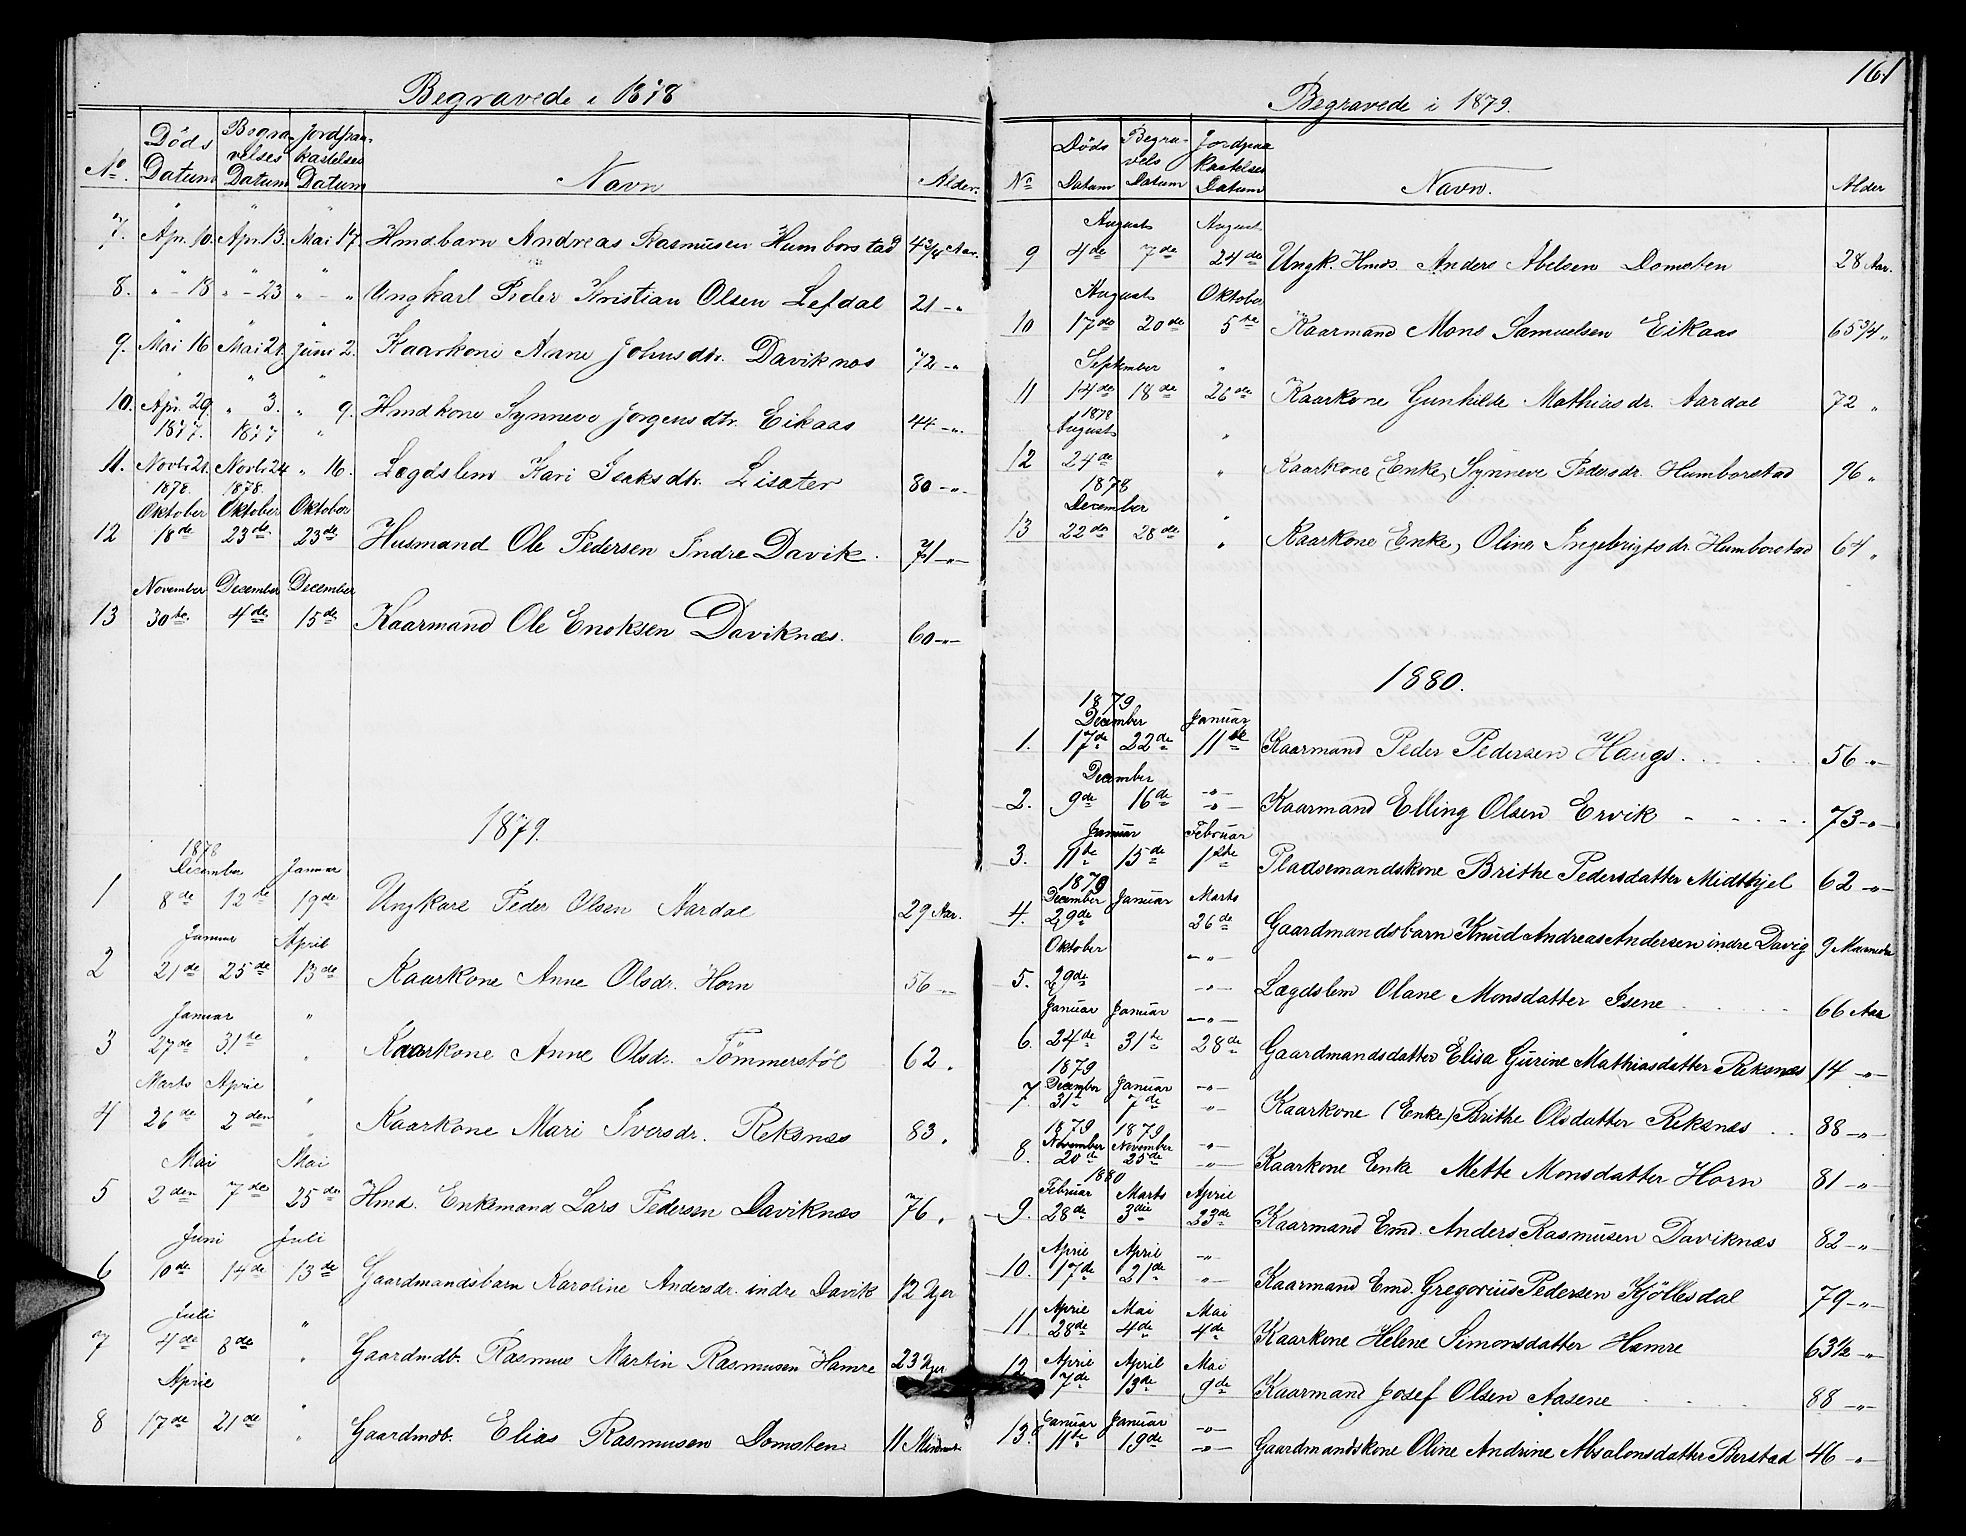 161
Begravede i 1878
No. Döds Datum Begravelses Datum Jordpaakastelses Datum Navn Alder.
7. Apr. 10. Apr. 13. Mai 17. Hmdbarn Andreas Rasmusen Humborstad 4 3/4 Aar.
8. " - 18 " - 23 " - " Ungkarl Peder Kristian Olsen Lefdal 21 -"
9. Mai 16 Mai 21. Juni 2. Kaarkone Anne Johnsdtr. Daviknes 72 -"
10. Apr. 29. " 3. " 9. Hmdkone Synneve Jorgensdtr. Eikaas 44 -"-
1877. 1877 "
11. Novbr 21. Novbr 24 " 16. Lægdslem Kari Isaksdtr. Lisæter 80 -"-
1878. 1878.
Oktober Oktober Oktober
12 18de 23de 23de Husmand Ole Pedersen Indre Davik. 71 -"-
November December December
13 30te 4de 15de Kaarmand Ole Enoksen Daviknæs. 60 -"-
1879.
1878
December Januar
1 8de 12te 19de Ungkarl Peder Olsen Aardal 29 Aar.
Januar April
2 21de 25de 13de Kaarkone Anne Olsdr. Horn 56 -"-
Januar "
3 27de 31te " Kaarkone Anne Olsdr. Tömmerstöl 62 "
Marts April
4 26de 2den " Kaarkone Mari Iversdr. Reksnæs 83 "
Mai Mai
5 2den 7de 25de Hmd. Enkemand Lars Pedersen Daviknæs 76 "
Juni Juli
6 10de 14de 13de Gaardmandsbarn Karoline Andersdr. indre Davik 12 Uger
Juli "
7 4de 8de " Gaardmdb. Rasmus Martin Rasmusen Hamre 23 Uger
April
8 17de 21de " Gaardmdb. Elias Rasmusen Domsten 11
Begravede i 1879.
No Döds Datum Begravels Datum Jordpaakastelses Datum Navn. Alder
August August
9 4de 7de 24de Ungk. Hmds. Anders Abelsen Domsten 28 Aar.
August Oktober
10 17de 20de 5te Kaarmand Mons Samuelsen Eikaas 65 3/4 "
September "
11 14de 18de 26de Kaarkone Gunhilde Mathiasdr. Aardal 72 "
1878
August "
12 24de " Kaarkone (Enke) Synneve Pedersdr. Humborstad 96 "
1878
December "
13 22de 28de " Kaarkone (Enke) Oline Ingebrigtsdr. Humborstad 64 "
1880.
1879
December Januar
1. 17de 22de 11te Kaarmand Peder Pedersen Haugs. 56 -"-
December
2. 9de 16de -"- Kaarmand Elling Olsen Ervik 73 -"-
Januar Februar
3. 11te 15de 1ste Pladsemandskone Brithe Pedersdatter Midthjel 62 -"-
1879
December Januar Marts
4. 29de 26de Gaardmandsbarn Knud Andreas Andersen indre Davig 9 Maaneder
Oktober -"-
5. 29de -"- Lægdslem Olane Monsdatter Isene 66 Aar
Januar Januar -"-
6. 24de 31te 28de Gaardmandsdatter Elisa Gurine Mathiasdatter Reksnæs 14 -"-
1879
December Januar -"-
7. 31te 7de -"- Kaarkone (Enke) Brithe Olsdatter Reksnæs 88 -"-
1879 1879
November November -"-
8. 20de 25de -"- Kaarkone Enke Mette Monsdatter Horn 81 -"-
1880
Februar Marts April
9. 28de 3die 23de Kaarmand Emd. Anders Rasmusen Daviknæs 82 -"-
April April -"-
10. 17de 21de -"- Kaarmand Emd. Gregorius Pedersen Kjöllesdal 79 -"-
April Mai Mai
11. 28de 4de 4de Kaarkone Helene Simonsdatter Hamre 63 1/2 -"-
April April Mai
12. 7de 13de 9de Kaarmand Josef Olsen Aasene 88 -"-
Januar Januar -"-
13. 11te 19de -"- Gaardmandskone Oline Andrine Absalonsdatter Berstad 46 -"-